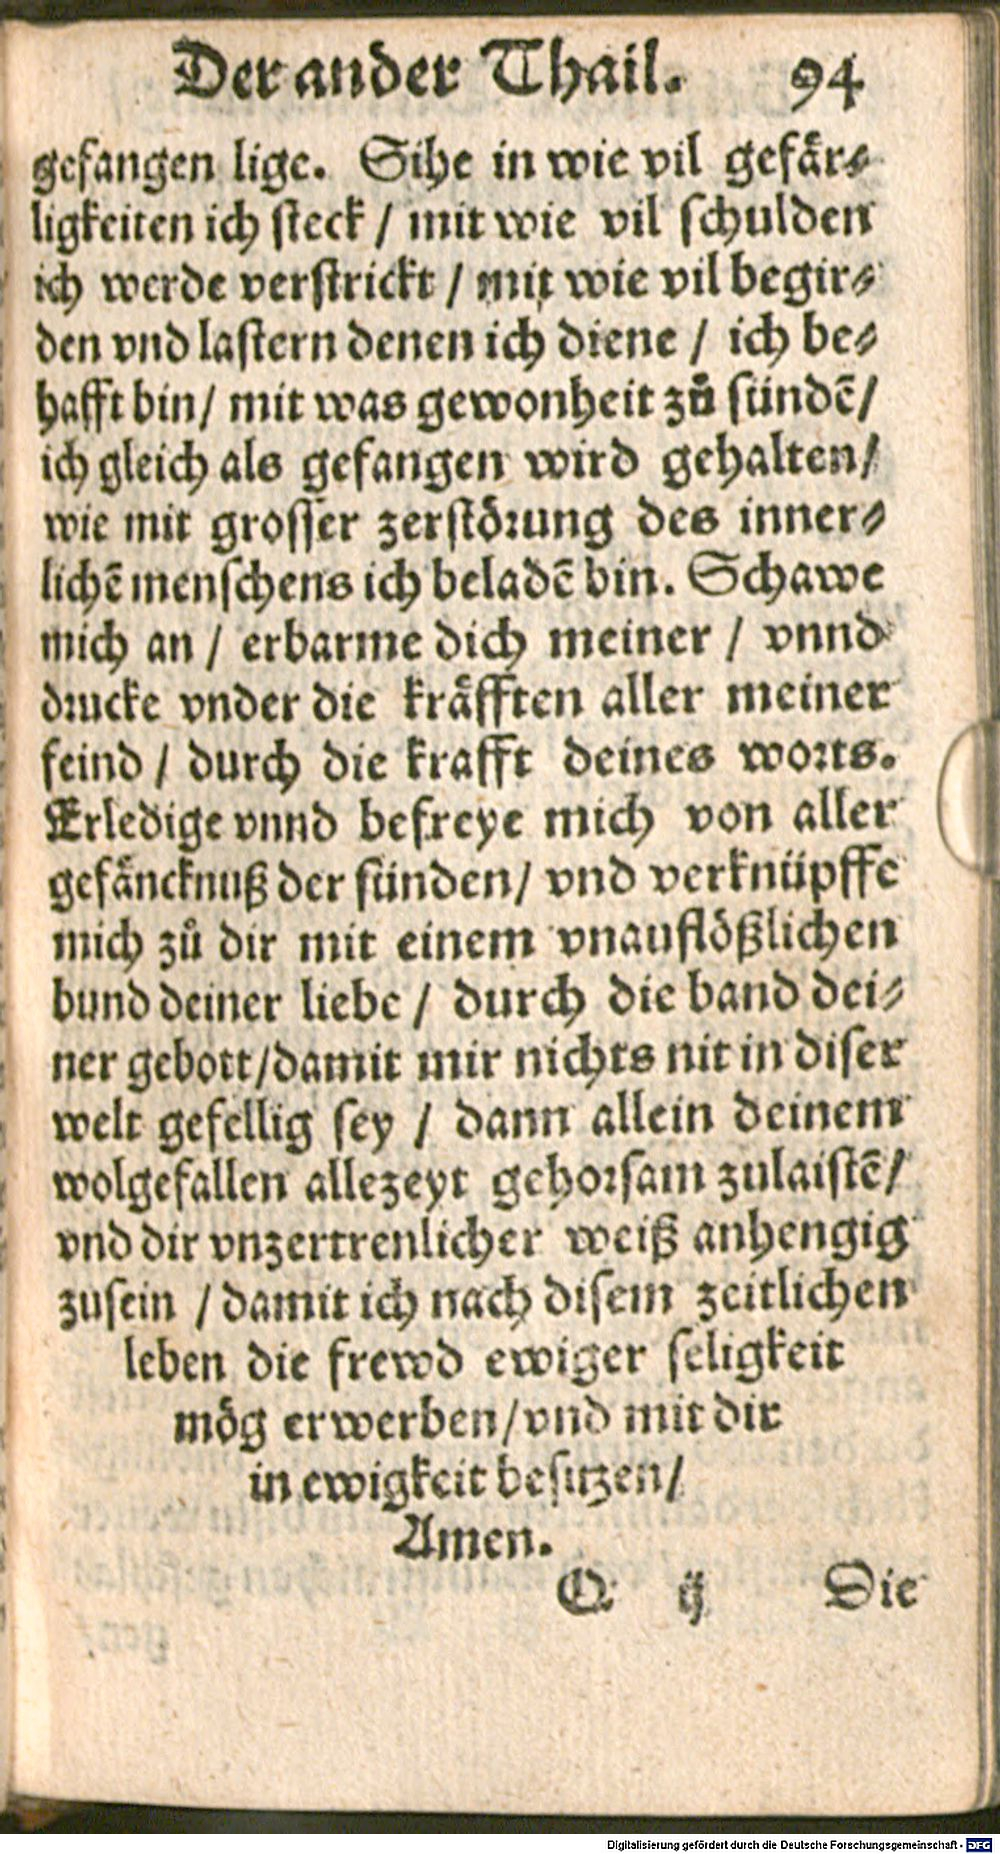 Der ander Thail. 94
gefangen lige. Sihe in wie vil gefaͤr⸗
ligkeiten ich steck / mit wie vil schulden
ich werde verstrickt / mit wie vil begir⸗
den vnd lastern denen ich diene / ich be⸗
hafft bin / mit was gewonheit zuͦ sündẽ /
ich gleich als gefangen wird gehalten /
wie mit grosser zerstoͤrung des inner⸗
lichẽ menschens ich beladẽ bin. Schawe
mich an / erbarme dich meiner / vnnd
drucke vnder die kraͤfften aller meiner
feind / durch die krafft deines worts.
Erledige vnnd befreye mich von aller
gefaͤncknuß der sünden / vnd verknüpffe
mich zuͦ dir mit einem vnaufloͤßlichen
bund deiner liebe / durch die band dei⸗
ner gebott / damit mir nichts nit in diser
welt gefellig sey / dann allein deinem
wolgefallen allezeyt gehorsam zulaistẽ /
vnd dir vnzertrenlicher weiß anhengig
zusein / damit ich nach disem zeitlichen
leben die frewd ewiger seligkeit
moͤg erwerben / vnd mit dir
in ewigkeit besitzen /
Amen.
Q ij Die
Digitalisierung gefördert durch die Deutsche Forschungsgemeinschaft - DFG